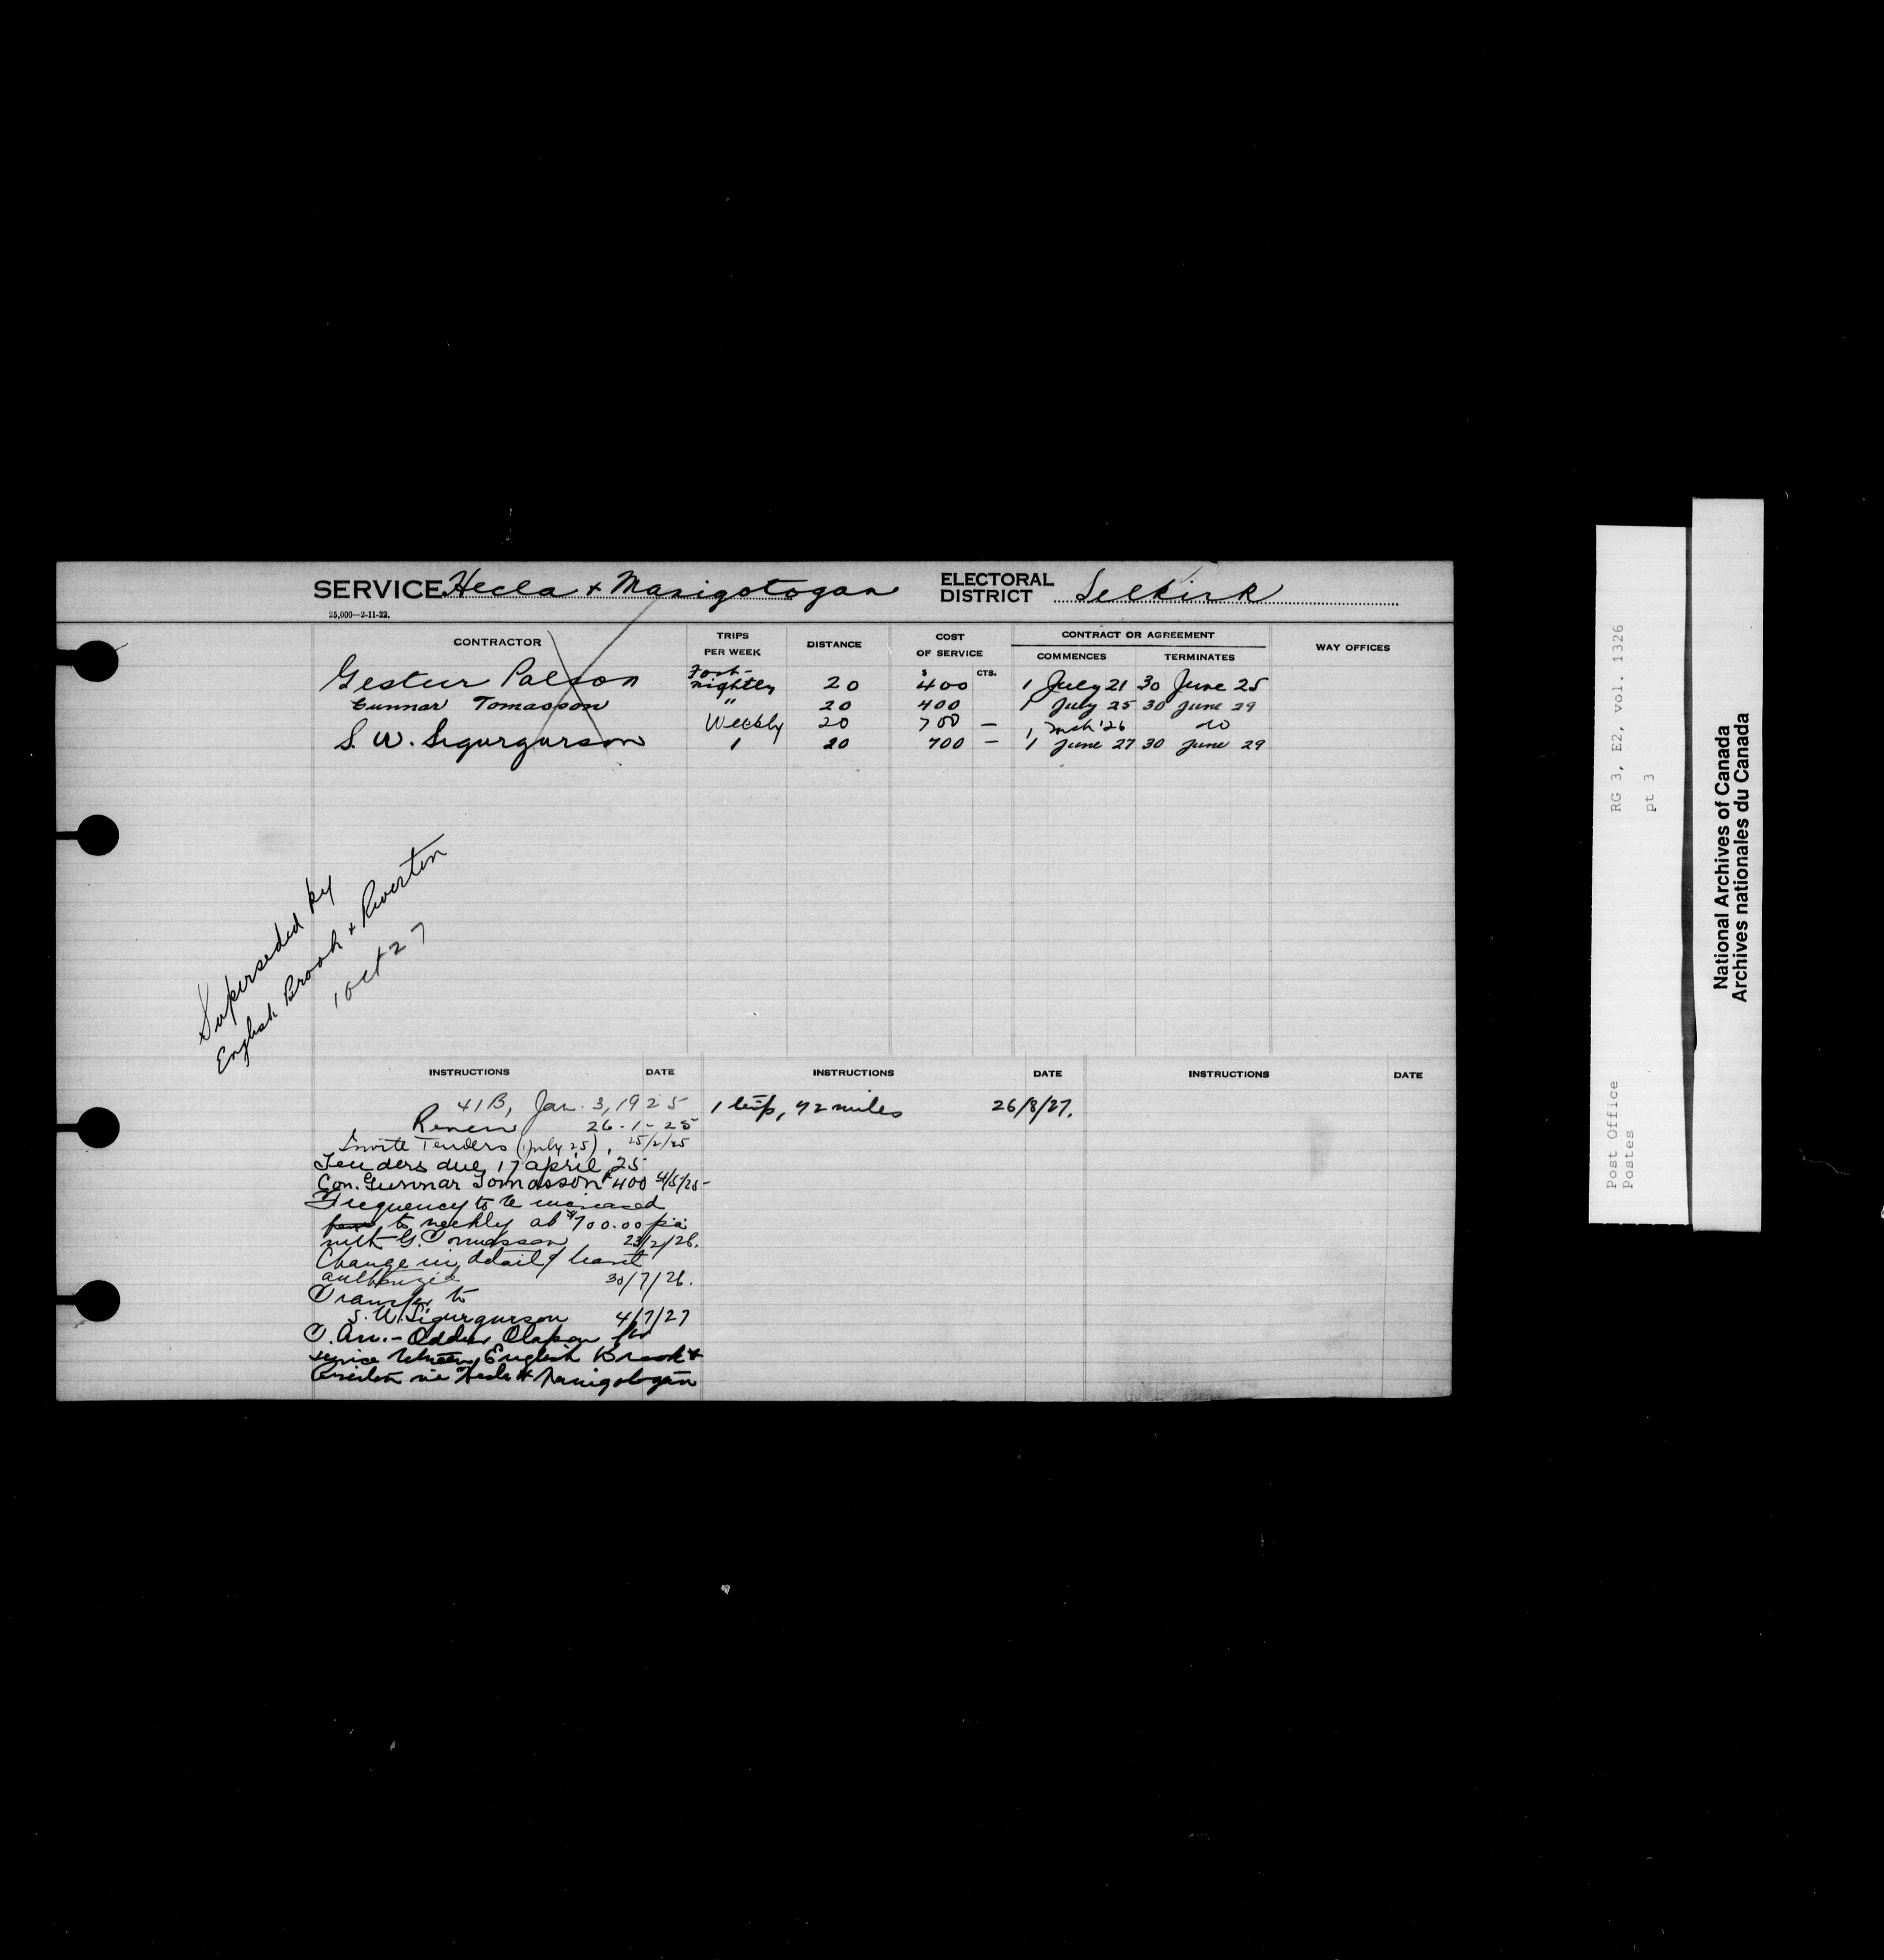 SERVICE Hecla + Manigotogan ELECTORAL DISTRICT Selkirk
25,000—2-11-22.
CONTRACTOR TRIPS PER WEEK DISTANCE COST OF SERVICE CONTRACT OR AGREEMENT WAY OFFICES
COMMENCES TERMINATES
$ CTS.
Gestur Palson Fort-nightly 20 400 1 July 21 30 June 25
Gunnar Tomasson " 20 400 1 July 25 30 June 29
Weekly 20 700 — 1 Mch '26 do
S. W. Sigurgurson 1 20 700 — 1 June 27 30 June 29
Superseded by
English Brook + Riverton
1 Oct 27
INSTRUCTIONS DATE INSTRUCTIONS DATE INSTRUCTIONS DATE
41B, Jan. 3, 1925
Renew 26-1-25
Invite Tenders (1 July 25), 25/2/25
Tenders due 17 April 25
Con. Gunnar Tomasson $400 4/5/25-
Frequency to be increased
to weekly at $700.00 p.a.
with G. Tomasson 23/2/26.
Change in detail of
authorized 30/7/26.
Transfer to
S. W. Sigurgurson 4/7/27
Oddur Olafson for
service between English Brook +
Riverton via Hecla + Manigotogan
1 trip, 42 miles 26/8/27.
RG 3, E2, vol. 1326
pt 3
Post Office
Postes
National Archives of Canada
Archives nationales du Canada